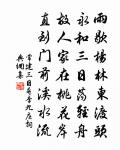 雨歇楊林東渡頭
永和三日蕩輕舟
故人家在桃花岸
直到門前溪水流
常建三日尋李九莊詞
典綱集